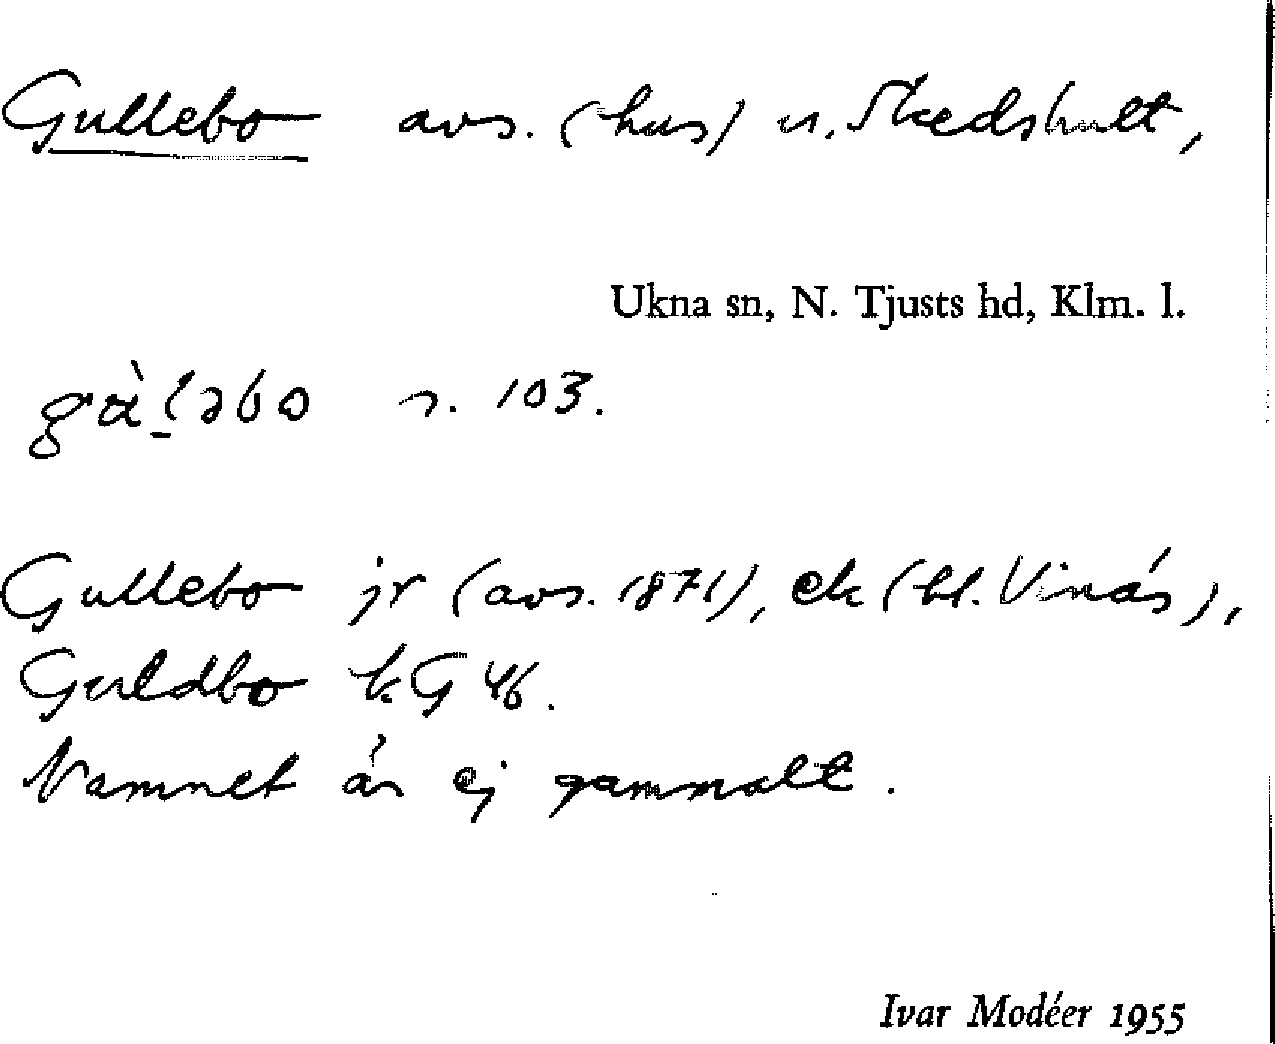 Gullebo avs. (hus) u. Skedshult,
Ukna sn, N. Tjusts hd, Klm. l.
s. 103.
Gullebo jr (avs. 1871), ek (bl. Vinås),
Guldbo kG 46.
Namnet är ej gammalt.
Ivar Modéer 1955